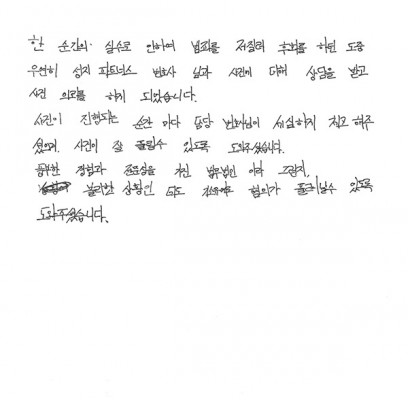 한 순간의 실수로 인하여 범죄를 저질러 후회를 하던 도중
우연히 성지 파트너스 변호사 님과 사건에 대해 상담을 받고
사건 의뢰를 하게 되었습니다.
사건이 진행되는 순간 마다 담당 변호사님이 세심하게 지도 해주
셨으며, 사건이 잘 풀릴수 있도록 도와주셨습니다.
풍부한 경험과 전문성을 가진 법무법인 이라 그런지,
불리한 상황인 혐의가 풀려날수 있도록
도와주셨습니다.